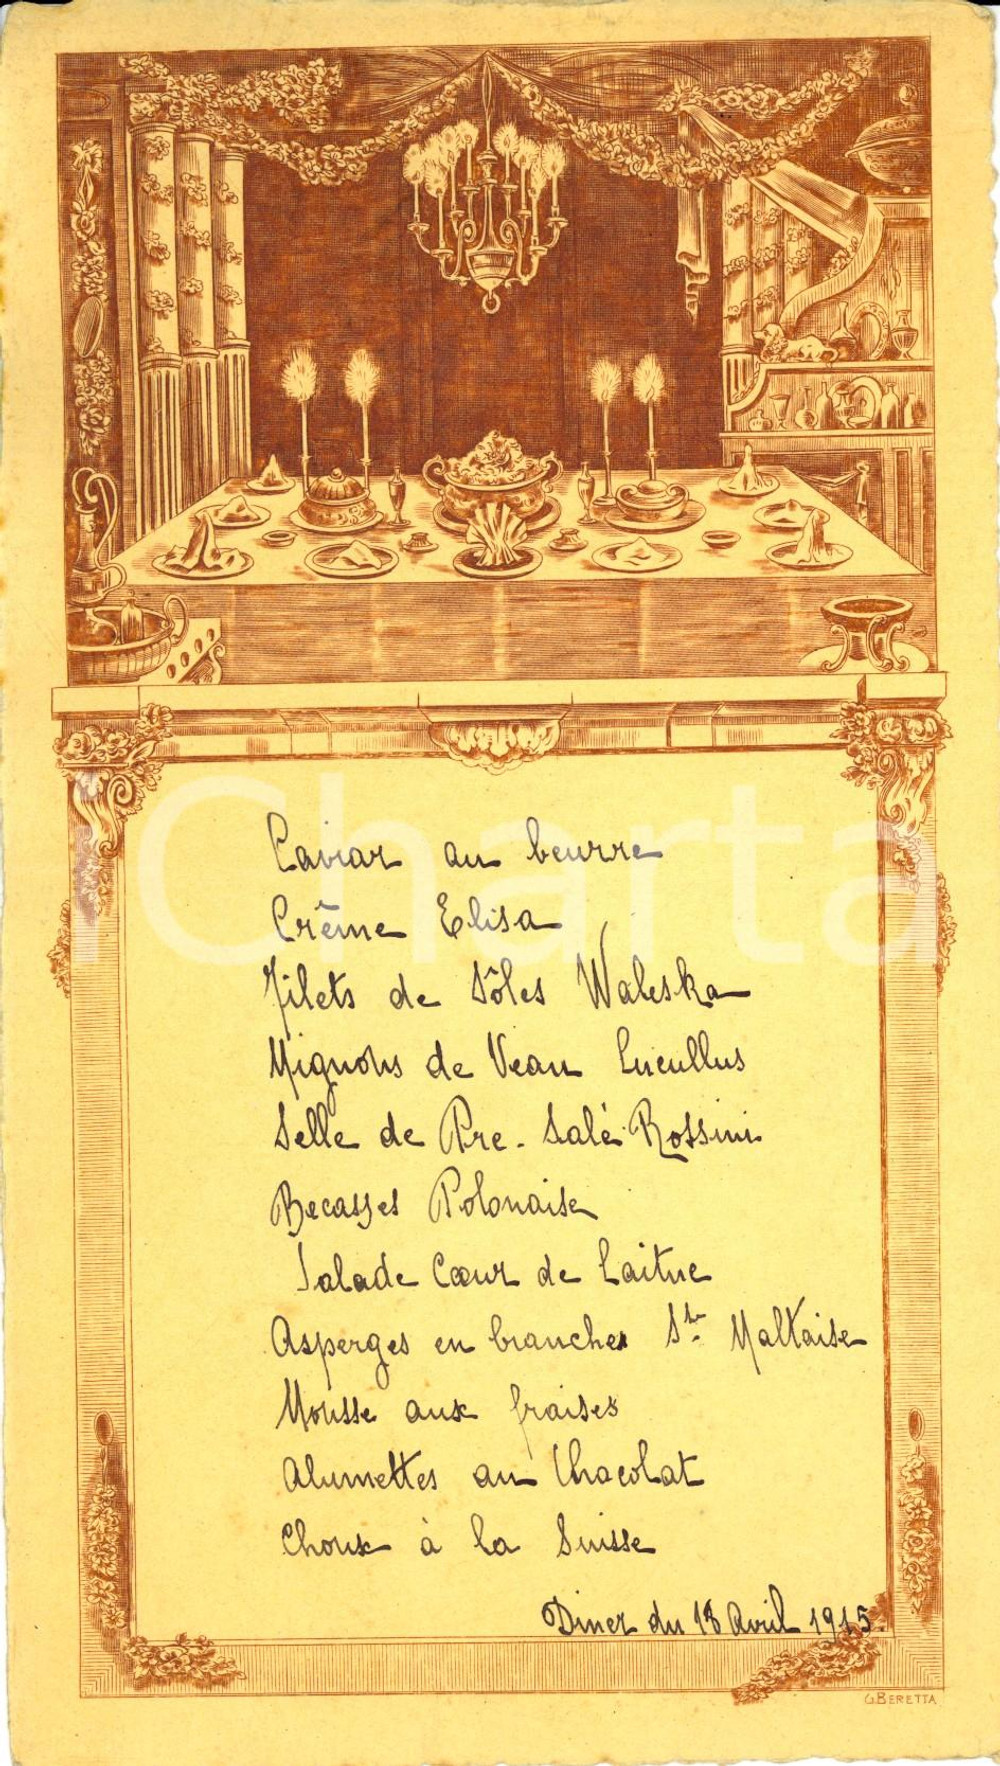 Caviar au beurre
Crême Elisa
Filets de Sôles Waleska
Mignons de Veau Lucullus
Selle de Pre-Salé Rossini
Becasses Polonaise
Salade Cœur de Laitue
Asperges en branches Sce Maltaise
Mousse aux fraises
Alumettes au Chocolat
Choux à la Suisse
Diner du 18 Avril 1915.
G.BERETTA
iCharta